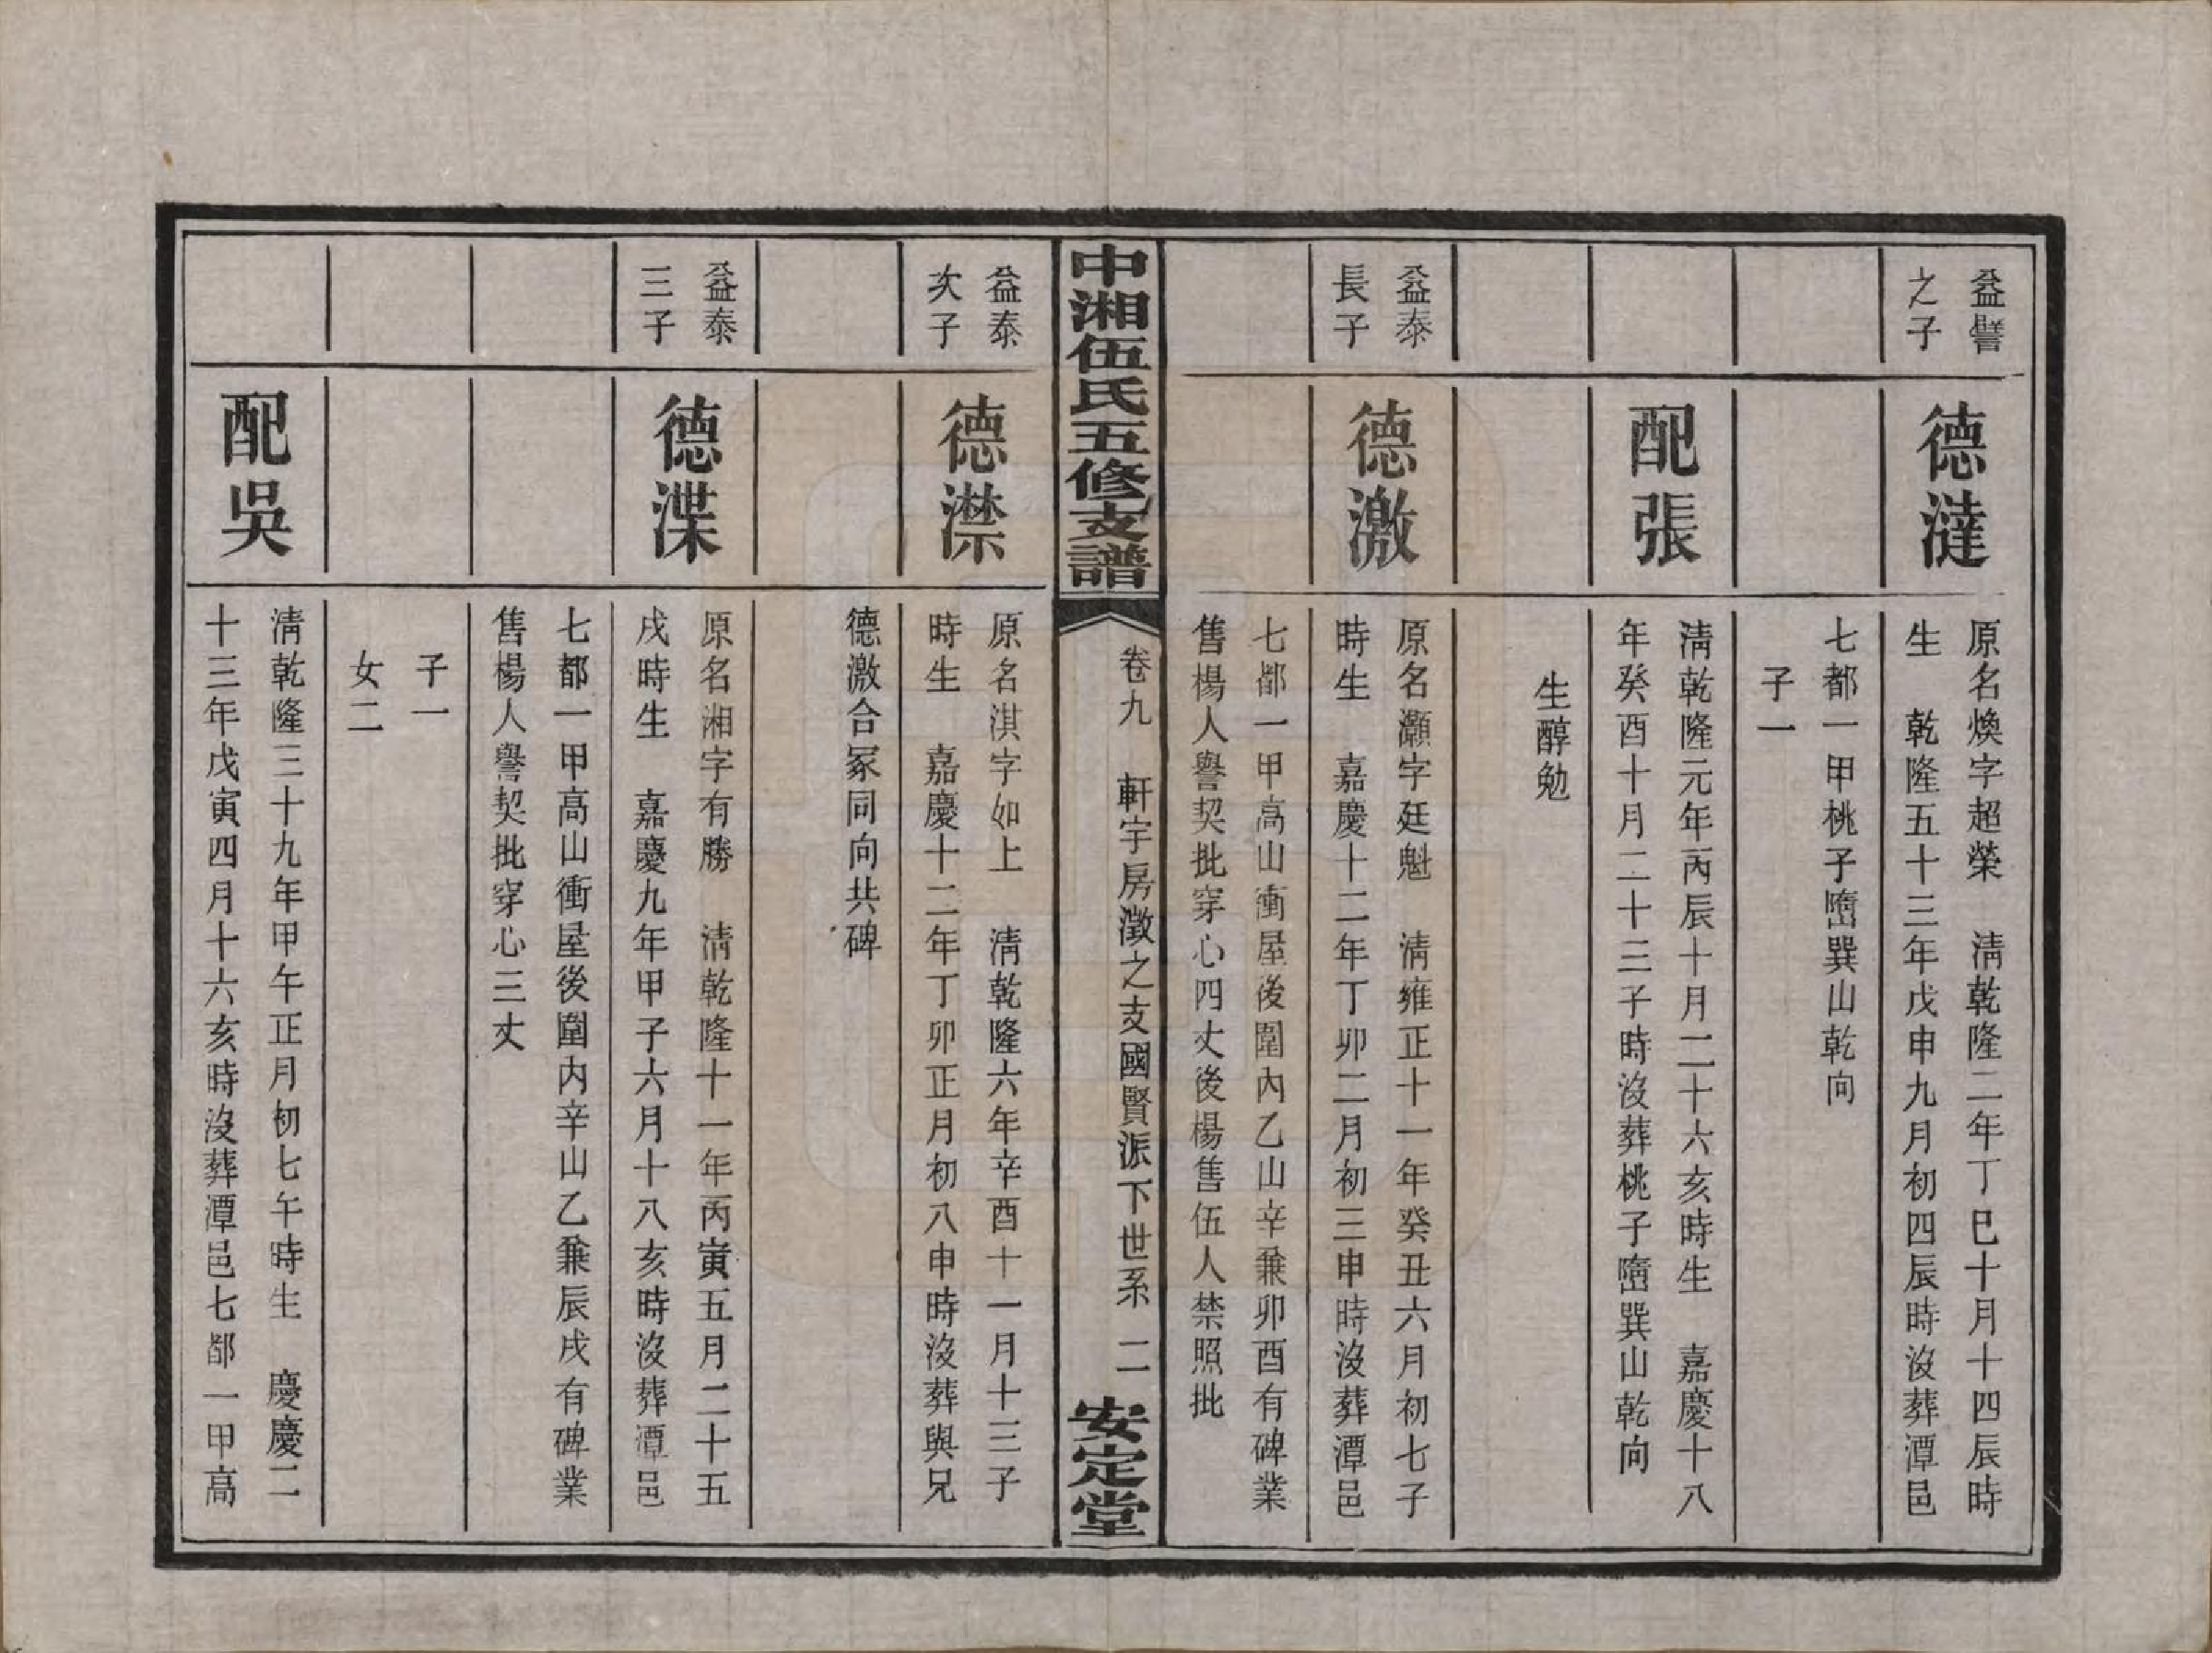 益譽
之子
德澾
原名煥字超榮　清乾隆二年丁巳十月十四辰時
生　乾隆五十三年戊申九月初四辰時沒葬潭邑
七都一甲桃子㙐巽山乾向
子一
配張
清乾隆元年丙辰十月二十六亥時生　嘉慶十八
年癸酉十月二十三子時沒葬桃子㙐巽山乾向
生醇勉
益泰
長子
德激
原名灝字廷魁　清雍正十一年癸丑六月初七子
時生　嘉慶十二年丁卯二月初三申時沒葬潭邑
七都一甲高山衝屋後圍內乙山辛兼卯酉有碑業
售楊人譽契批穿心四丈後楊售伍人禁照批
中湘伍氏五修支譜
卷九　軒宇房澂之支國賢派下世系　二
安定堂
益泰
次子
德澿
原名淇字如上　清乾隆六年辛酉十一月十三子
時生　嘉慶十二年丁卯正月初八申時沒葬與兄
德激合冢同向共碑
益泰
三子
德渫
原名湘字有勝　清乾隆十一年丙寅五月二十五
戌時生　嘉慶九年甲子六月十八亥時沒葬潭邑
七都一甲高山衝屋後圍內辛山乙兼辰戌有碑業
售楊人譽契批穿心三丈
子一
女二
配吳
清乾隆三十九年甲午正月初七午時生　慶慶二
十三年戊寅四月十六亥時沒葬潭邑七都一甲高